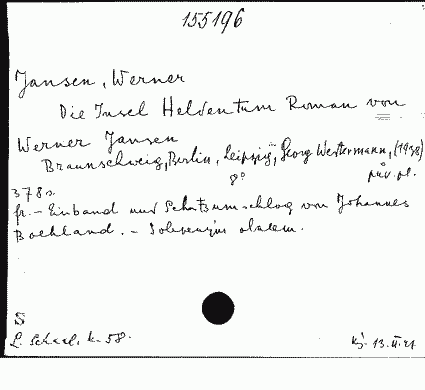 155196
Jansen, Werner
Die Insel Heldentum Roman von
Werner Jansen
Braunschweig, Berlin, Leipzig, Georg Westermann, (1938)
8°
378 s.
fr. – Einband und Schutzumschlag von Johannes
Boehland. –
S
k. 58.
13. II.